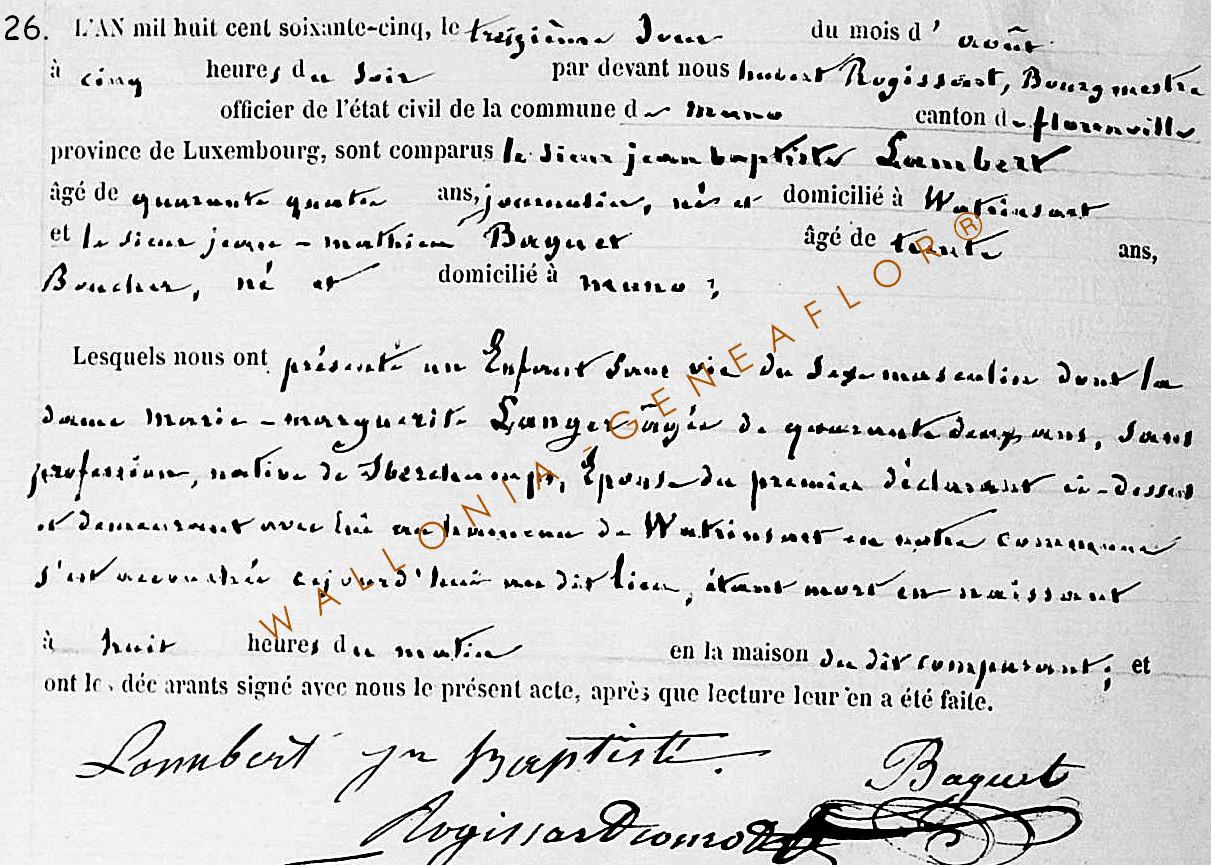 26. L'AN mil huit cent soixante-cinq, le treizième Jour du mois d' août
à cinq heures du soir par devant nous hubert Rogissart, Bourgmestre
officier de l'état civil de la commune de muno canton de florenville
province de Luxembourg, sont comparus le sieur jean baptiste Lambert
âgé de quarante quatre ans, journalier, né et domicilié à Watrinsart
et le sieur jean - mathieu Baguet âgé de trente ans,
Boucher, né et domicilié à muno ;
Lesquels nous ont présenté un Enfant Sans vie du Sexe masculin dont la
dame marie - marguerite Langer âgée de quarante deux ans, Sans
profession, native de Épouse du premier déclarant ci-dessus
et demeurant avec lui au hameau de Watrinsart en notre commune
s'est accouchée cejourd'hui au dit lieu, étant mort en naissant
à huit heures du matin en la maison du dit comparant ; et
ont les déc arants signé avec nous le présent acte, après que lecture leur en a été faite.
Lambert jn Baptiste. Baguet
Rogissart
WALLONIA-GENEAFLOR®